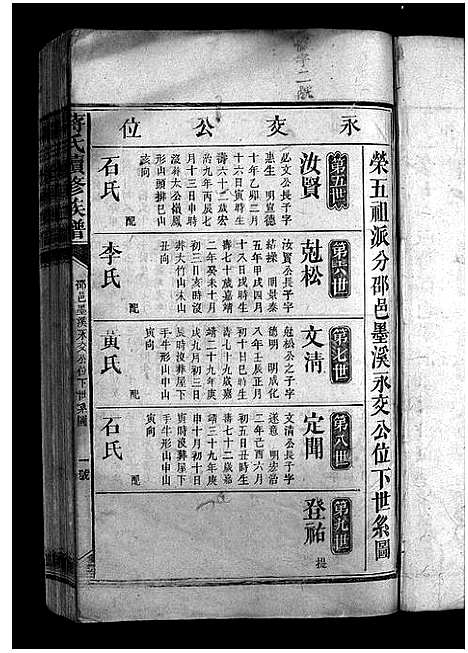 榮五祖派分邵邑墨溪永交公位下世系圖
永交公位
第五世
汝賢
必文公長子字
惠生 明宣德
十年乙卯二月
十六日寅時生
壽六十二歲宏
治九年丙辰七
月十三日申時
沒葬太公嶺鳳
形山頭揖巳山
亥向
配
石氏
第六世
尅松
汝賢公長子字
結操 明景泰
五年甲戌四月
十八日戌時生
壽七十歲嘉靖
二年癸未十月
初三日亥時沒
葬大竹山未山
丑向
配
李氏
第七世
文清
尅松公之子字
德明 明成化
八年壬辰正月
初十日巳時生
壽七十九歲嘉
靖二十九年庚
戌九月初三日
辰時沒葬屋下
手牛形山申山
寅向
配
黃氏
第八世
定開
文清公長子字
遂意 明宏治
二年己酉六月
初五日丑時生
壽七十二歲嘉
靖三十九年庚
申十月初十日
寅時沒葬屋下
手牛形山申山
寅向
配
石氏
第九世
登祐
提
蔣氏續修族譜
邵邑墨溪永交公位下世系圖
一號